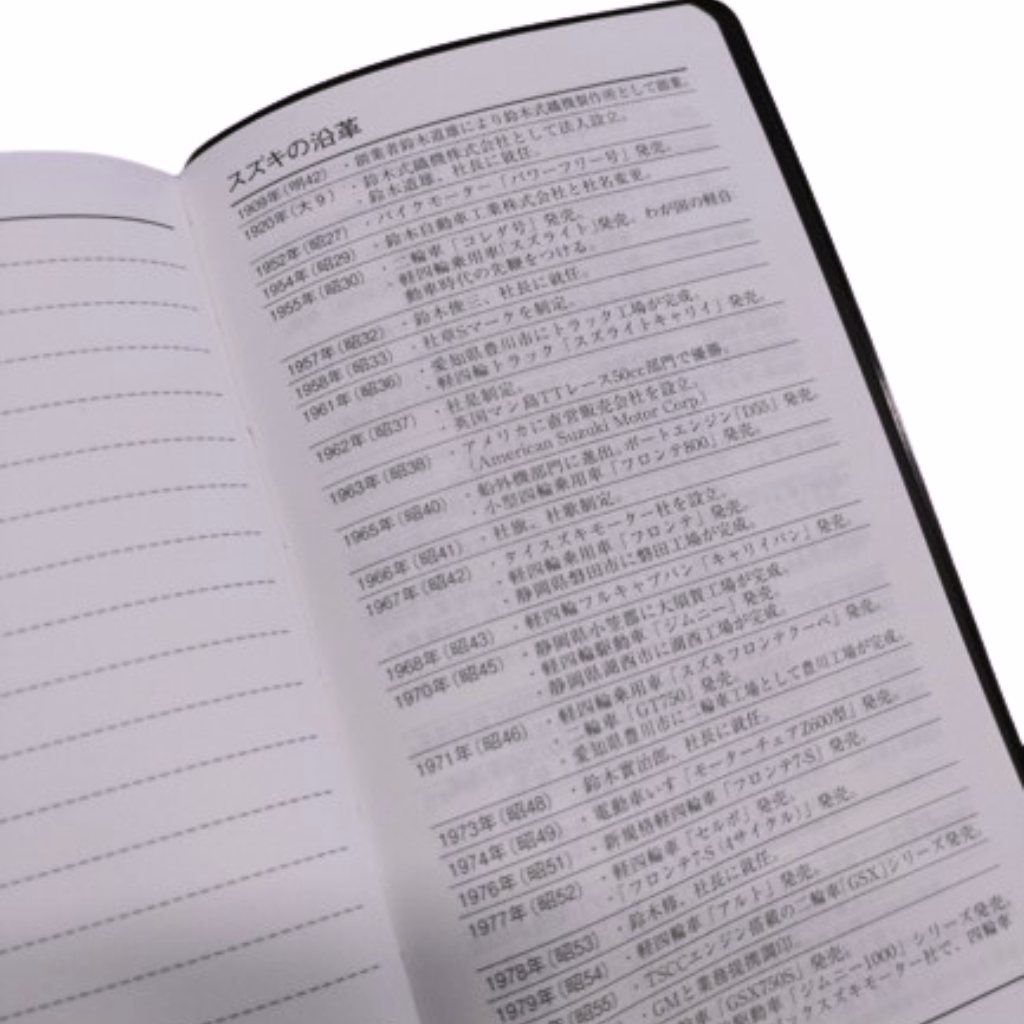 スズキの沿革
1909年(明42)・創業者鈴木道雄により鈴木式織機製作所として創業。
1920年(大9)・鈴木式織機株式会社として法人設立。
・鈴木道雄、社長に就任。
1952年(昭27)・バイクモーター「パワーフリー号」発売。
1954年(昭29)・鈴木自動車工業株式会社と社名変更。
1955年(昭30)・二輪車「コレダ号」発売。
・軽四輪乗用車「スズライト」発売、わが国の軽自
動車時代の先鞭をつける。
1957年(昭32)・鈴木俊三、社長に就任。
1958年(昭33)・社章Sマークを制定。
1961年(昭36)・愛知県豊川市にトラック工場が完成。
・軽四輪トラック「スズライトキャリイ」発売。
1962年(昭37)・社是制定。
・英国マン島TTレース50cc部門で優勝。
1963年(昭38)・アメリカに直営販売会社を設立。
(American Suzuki Motor Corp.)
1965年(昭40)・船外機部門に進出。ボートエンジン「D55」発売。
・小型四輪乗用車「フロンテ800」発売。
1966年(昭41)・社旗、社歌制定。
1967年(昭42)・タイスズキモーター社を設立。
・軽四輪乗用車「フロンテ」発売。
・静岡県磐田市に磐田工場が完成。
1968年(昭43)・軽四輪フルキャブバン「キャリイバン」発売。
1970年(昭45)・静岡県小笠郡に大須賀工場が完成。
・軽四輪駆動車「ジムニー」発売。
・静岡県湖西市に湖西工場が完成。
1971年(昭46)・軽四輪乗用車「スズキフロンテクーペ」発売。
・二輪車「GT750」発売。
・愛知県豊川市に二輪車工場として豊川工場が完成。
1973年(昭48)・鈴木實治郎、社長に就任。
1974年(昭49)・電動車いす「モーターチェアZ600型」発売。
1976年(昭51)・新規格軽四輪車「フロンテ7-S」発売。
1977年(昭52)・軽四輪車「セルボ」発売。
・「フロンテ7-S(4サイクル)」発売。
1978年(昭53)・鈴木修、社長に就任。
1979年(昭54)・軽四輪車「アルト」発売。
年(昭55)・TSCCエンジン搭載の二輪車「GSX」シリーズ発売。
・GMと業務提携調印。
輪車「GSX750S」発売。
駆動車「ジムニー1000」シリーズ発売。
ックスズキモーター社で、四輪車